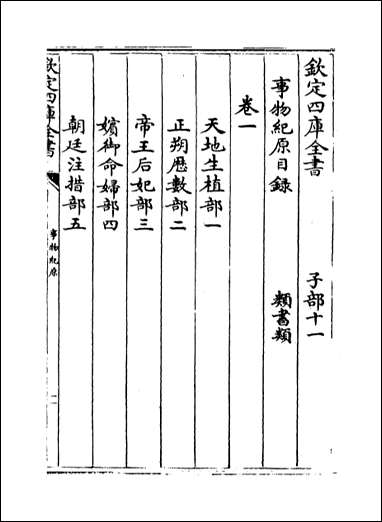 欽定四庫全書 子部十一
事物紀原目錄 類書類
卷一
天地生植部一
正朔厯數部二
帝王后妃部三
嬪御命婦部四
朝廷注措部五
欽定四庫全書
事物紀原
一